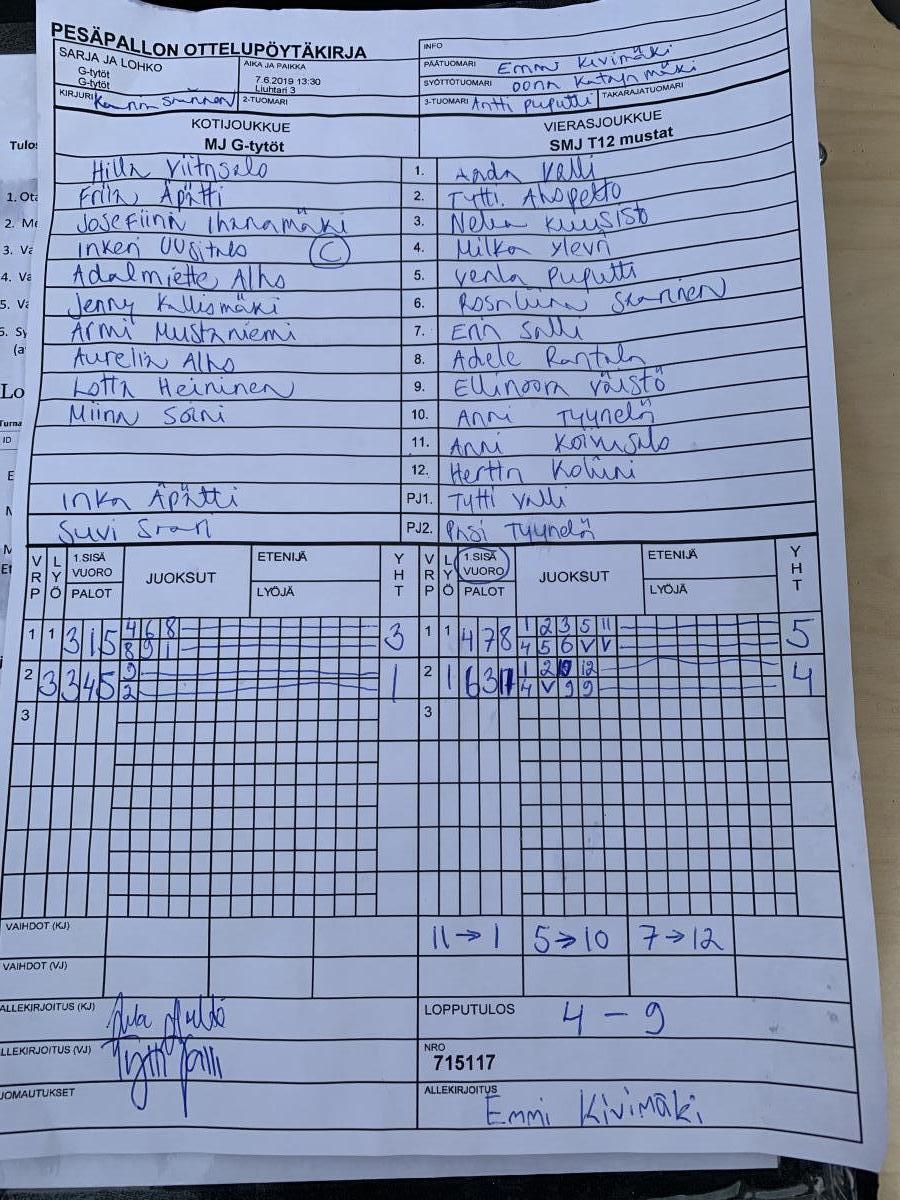 PESÄPALLON OTTELUPÖYTÄKIRJA
SARJA JA LOHKO
G-tytöt
G-tytöt
AIKA JA PAIKKA
7.6.2019 13:30
Liuhtari 3
KIRJURI
2-TUOMARI
INFO
PÄÄTUOMARI Emmi Kivimäki
SYÖTTÖTUOMARI Oona Katajamäki
3-TUOMARI Antti Puputti TAKARAJATUOMARI
KOTIJOUKKUE
MJ G-tytöt
VIERASJOUKKUE
SMJ T12 mustat
Hilla Viitasalo 1. Aada Valli
Friia Äpätti 2. Tytti Ahopelto
Josefiina Ihanamäki 3. Nelia Kuusisto
Inkeri Uusitalo C 4. Milka Yleni
Adalmiette Alho 5. Venla Puputti
Jenny Kallismäki 6. Rosaliina Saarinen
Armi Mustaniemi 7. Erin Salli
Aurelia Alho 8. Adele Rantala
Lotta Heininen 9. Ellinoora Väistö
Miina Soini 10. Anni Tyynelä
11. Anni Koivusalo
12. Hertta Koluni
Inka Äpätti PJ1. Tytti Valli
Suvi Saari PJ2. Pasi Tyynelä
VRP LYÖ 1.SISÄ VUORO PALOT JUOKSUT ETENIJÄ LYÖJÄ YHT VRP LYÖ 1.SISÄ VUORO PALOT JUOKSUT ETENIJÄ LYÖJÄ YHT
1 1 3 1 5 4 6 8 3 1 1 4 7 8 1 2 3 5 11 5
8 9 1 4 5 6 V V
2 3 3 4 5 9 1 2 1 6 3 1 2 10 12 4
2 4 V 9 9
3 3
VAIHDOT (KJ) 11→1 5→10 7→12
VAIHDOT (VJ)
ALLEKIRJOITUS (KJ)
LOPPUTULOS 4 – 9
ALLEKIRJOITUS (VJ) Tytti Valli
NRO
715117
ALLEKIRJOITUS
Emmi Kivimäki